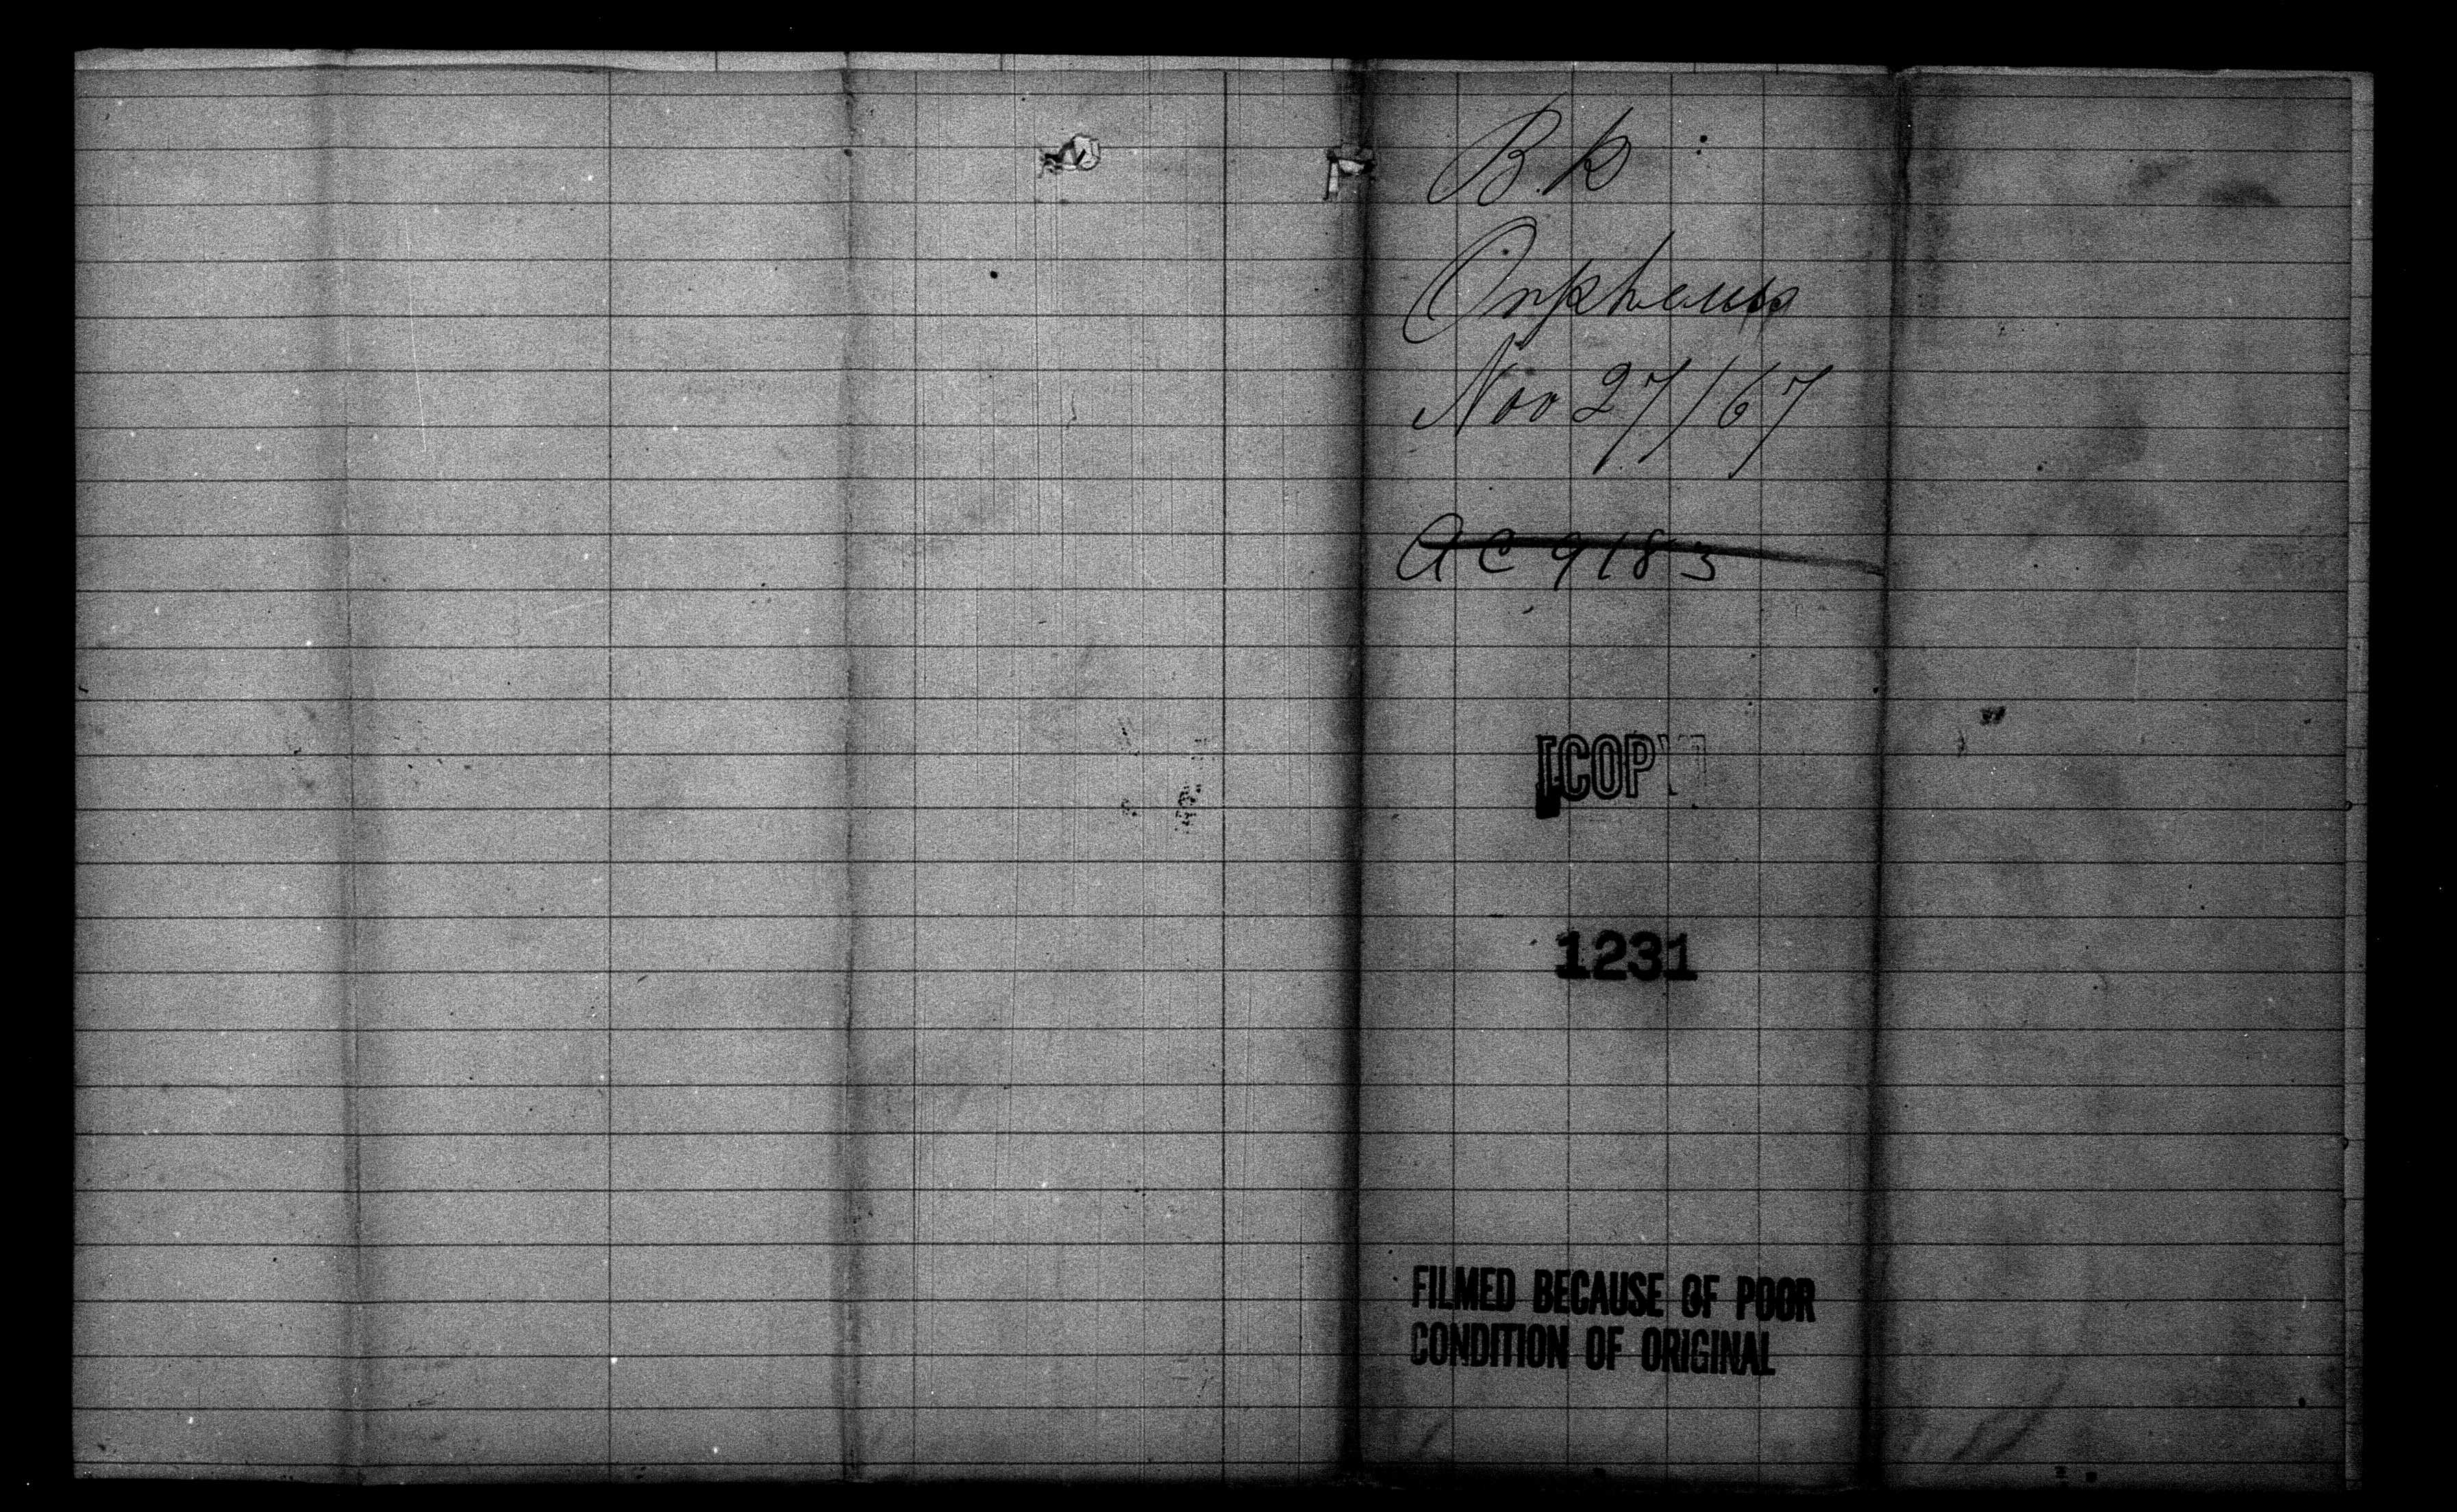 B.k
Orpheus
Nov 27/67
AC 9183
[COPY]
1231
FILMED BECAUSE OF POOR
CONDITION OF ORIGINAL